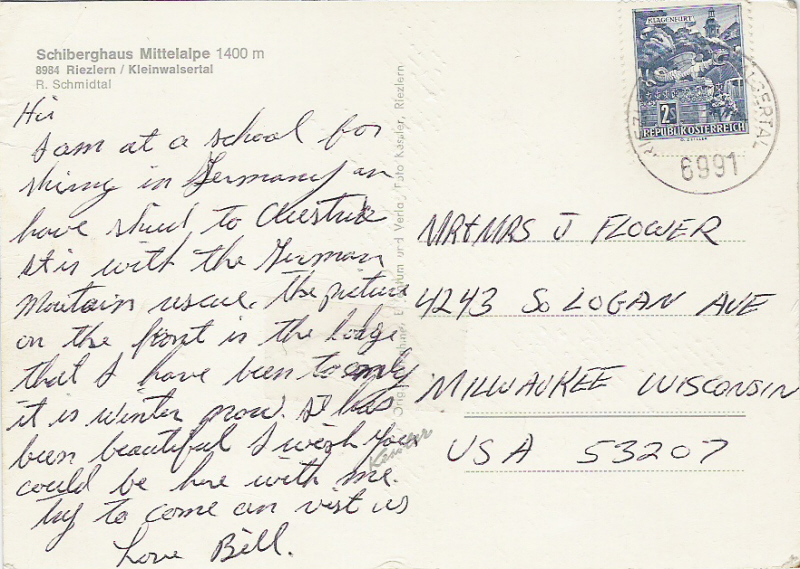 Schiberghaus Mittelalpe 1400 m
8984 Riezlern / Kleinwalsertal
R. Schmidtal
Hi
I am at a school for
skiing in Germany an
have skied to Austria
It is with the German
Moutain rescue. The picture
on the front is the lodge
that I have been to only
it is winter now. It has
been beautiful I wish you
could be here with me.
Try to come an visit us
Love Bill.
Foto Kessler, Riezlern
KLAGENFURT
2S
REPUBLIK ÖSTERREICH
6991
MR+MRS J FLOWER
4243 So LOGAN AVE
MILWAUKEE WISCONSIN
USA 53207